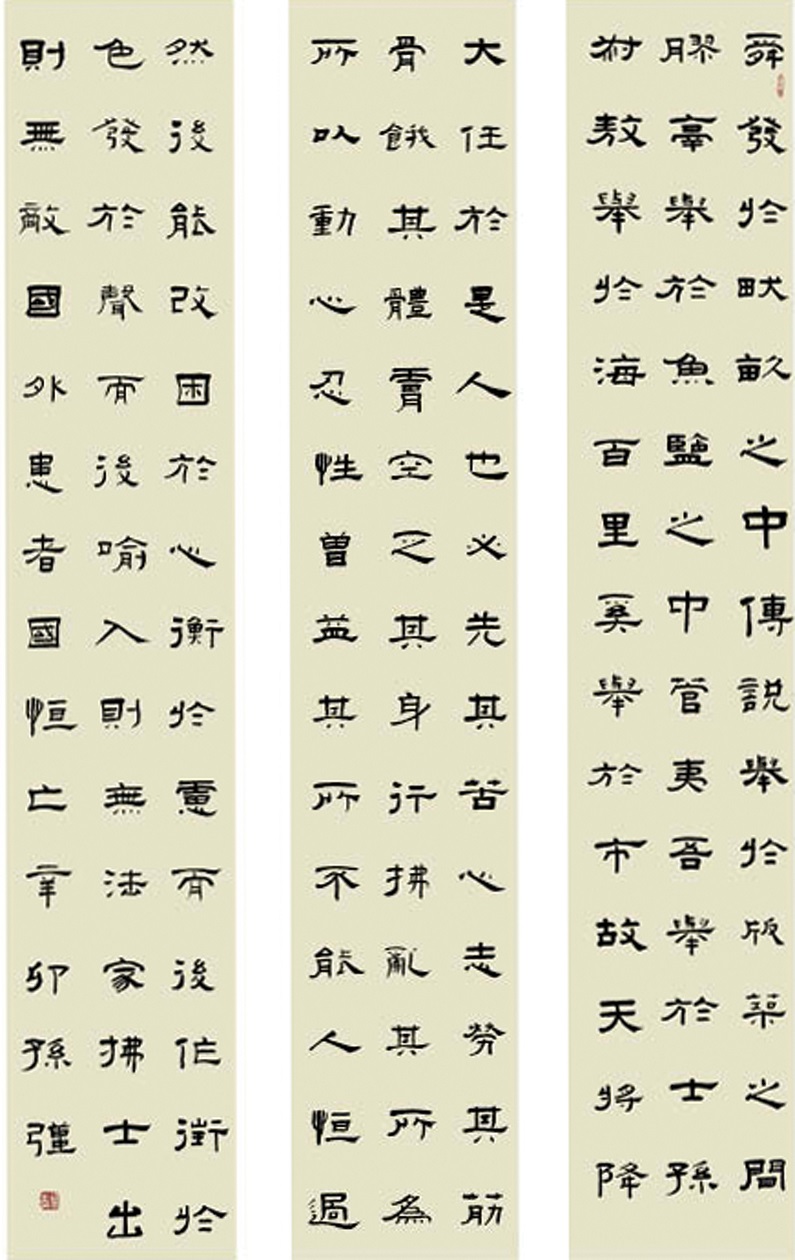 舜發於畎畝之中傅說舉於版築之間
膠鬲舉於魚鹽之中管夷吾舉於士孫
叔敖舉於海百里奚舉於市故天將降
大任於是人也必先其苦心志勞其筋
骨餓其體膚空乏其身行拂亂其所為
所以動心忍性曾益其所不能人恒過
然後能改困於心衡於慮而後作徵於
色發於聲而後喻入則無法家拂士出
則無敵國外患者國恒亡辛卯孫彊